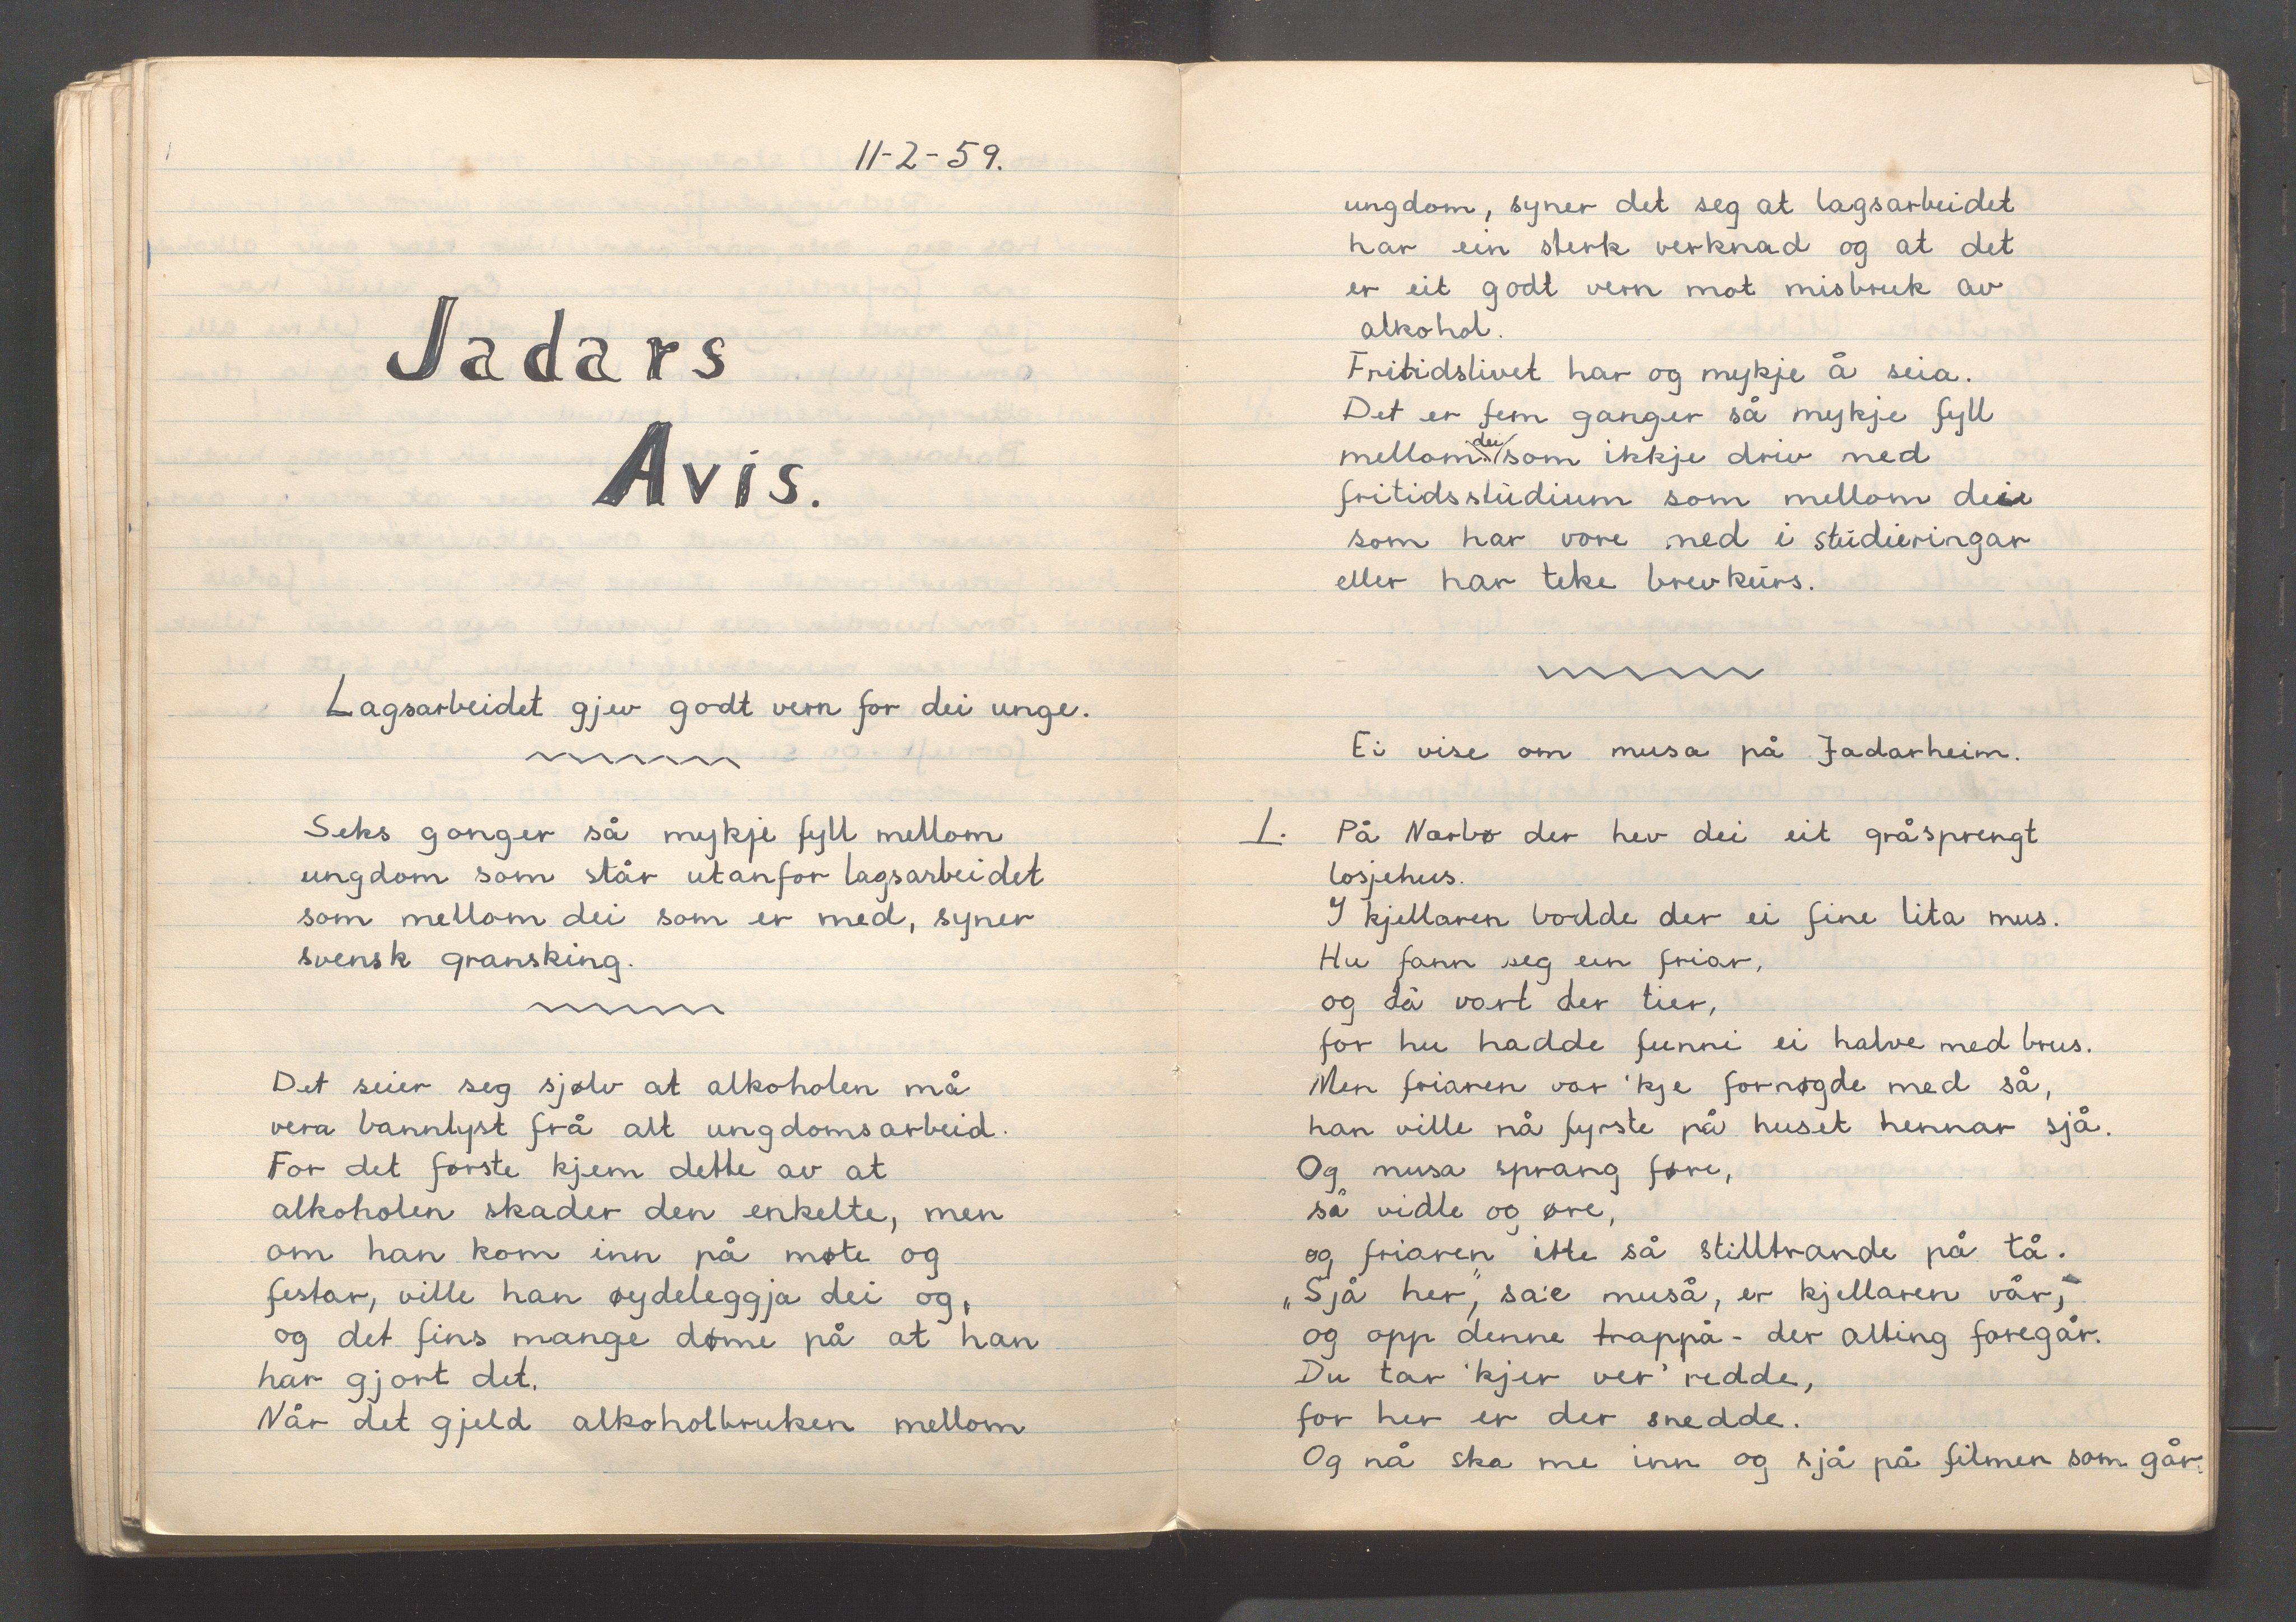 11-2-59.
Jadars
Avis.
Lagsarbeidet gjev godt vern for dei unge.
Seks ganger så mykje fyll mellom
ungdom som står utanfor lagsarbeidet
som mellom dei som er med, syner
svensk gransking.
Det seier seg sjølv at alkoholen må
vera bannlyst frå alt ungdomsarbeid.
For det første kjem dette av at
alkoholen skader den enkelte, men
om han kom inn på møte og
festar, ville han øydeleggja dei og,
og det fins mange døme på at han
har gjort det.
Når det gjeld alkoholbruken mellom
ungdom, syner det seg at lagsarbeidet
har ein sterk verknad og at det
er eit godt vern mot misbruk av
alkohol.
Fritidslivet har og mykje å seia.
Det er fem ganger så mykje fyll
mellom dei som ikkje driv med
fritidsstudium som mellom dei
som har vore med i studieringar
eller har teke brevkurs.
Ei vise om musa på Jadarheim.
1. På Nærbø der hev dei eit gråsprengt
losjehus.
I kjellaren bodde der ei fine lita mus.
Hu fann seg ein friar,
og då vart der tier,
for hu hadde funni ei halve med brus.
Men friaren var 'kje fornøgde med så,
han ville nå fyrste på huset hennar sjå.
Og musa sprang føre,
så vidle og øre,
og friaren itte så stilltrande på tå.
„Sjå her", sa'e muså, er kjellaren vår,
og opp denne trappå - der alting foregår.
Du tar 'kjer ver' redde,
for her er der snedde.
Og nå ska me inn og sjå på filmen som går.